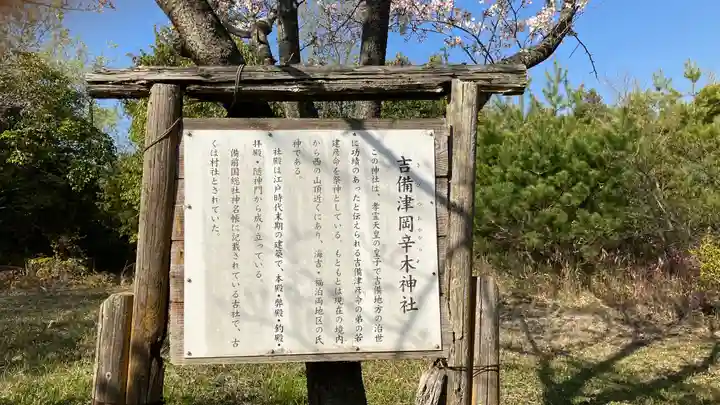 吉備津岡辛木神社
この神社は、孝霊天皇の皇子で吉備地方の治世
に功績のあったと伝えられる吉備津彦命の弟の若
建彦命を祭神としている。もともとは現在の境内
から西の山頂近くにあり、海吉・福泊両地区の氏
神である。
社殿は江戸時代末期の建築で、本殿・弊殿・釣殿・
拝殿・随神門から成り立っている。
備前国総社神名帳に記載されている古社で、古
くは村社とされていた。